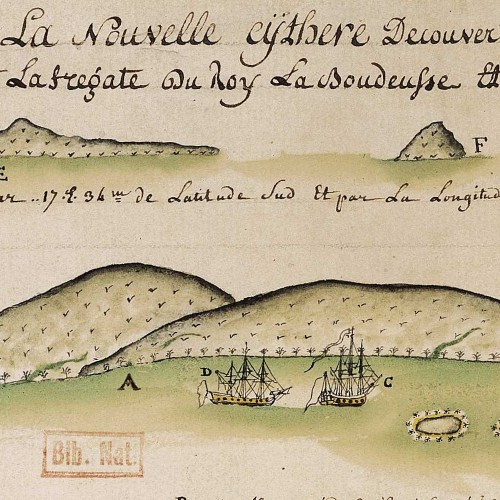 La Nouvelle cÿthere Decouver
La fregate Du Roy La Boudeusse Et
F
E
ar ..17.d. 34 m de Latitude Sud Et par La Longitud
D
C
A
Bib. Nat.